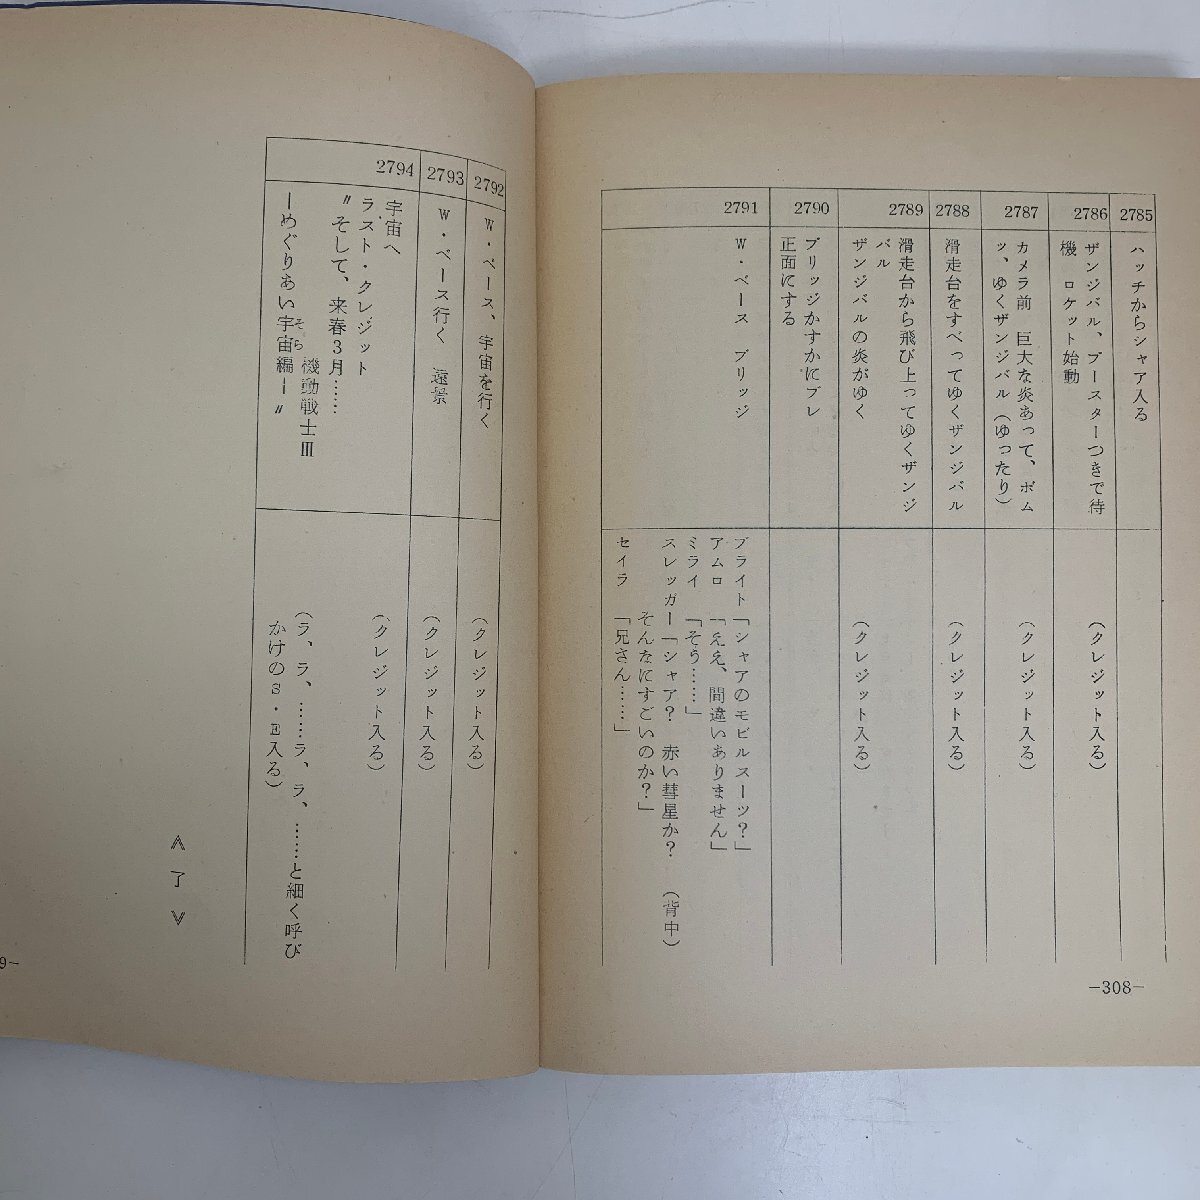 2785
ハッチからシャア入る
2786
ザンジバル、ブースターつきで待
機　ロケット始動
(クレジット入る)
2787
カメラ前　巨大な炎あって、ボム
ッ、ゆくザンジバル(ゆったり)
(クレジット入る)
2788
滑走台をすべってゆくザンジバル
(クレジット入る)
2789
滑走台から飛び上ってゆくザンジ
バル
ザンジバルの炎がゆく
(クレジット入る)
2790
ブリッジかすかにブレ
正面にする
2791
W・ベース　ブリッジ
ブライト「シャアのモビルスーツ?」
アムロ　「ええ、間違いありません」
ミライ　「そう……」
スレッガー「シャア?　赤い彗星か?　(背中)
そんなにすごいのか?」
セイラ　「兄さん……」
-308-
2792
W・ベース、宇宙を行く
(クレジット入る)
2793
W・ベース行く　遠景
(クレジット入る)
2794
宇宙へ
ラスト・クレジット
〃そして、来春3月……
機動戦士Ⅲ
ーめぐりあい宇宙編ー〃
そら
(クレジット入る)
(ラ、ラ、……ラ、ラ、……と細く呼び
かけのS・E入る)
≪了≫
9-